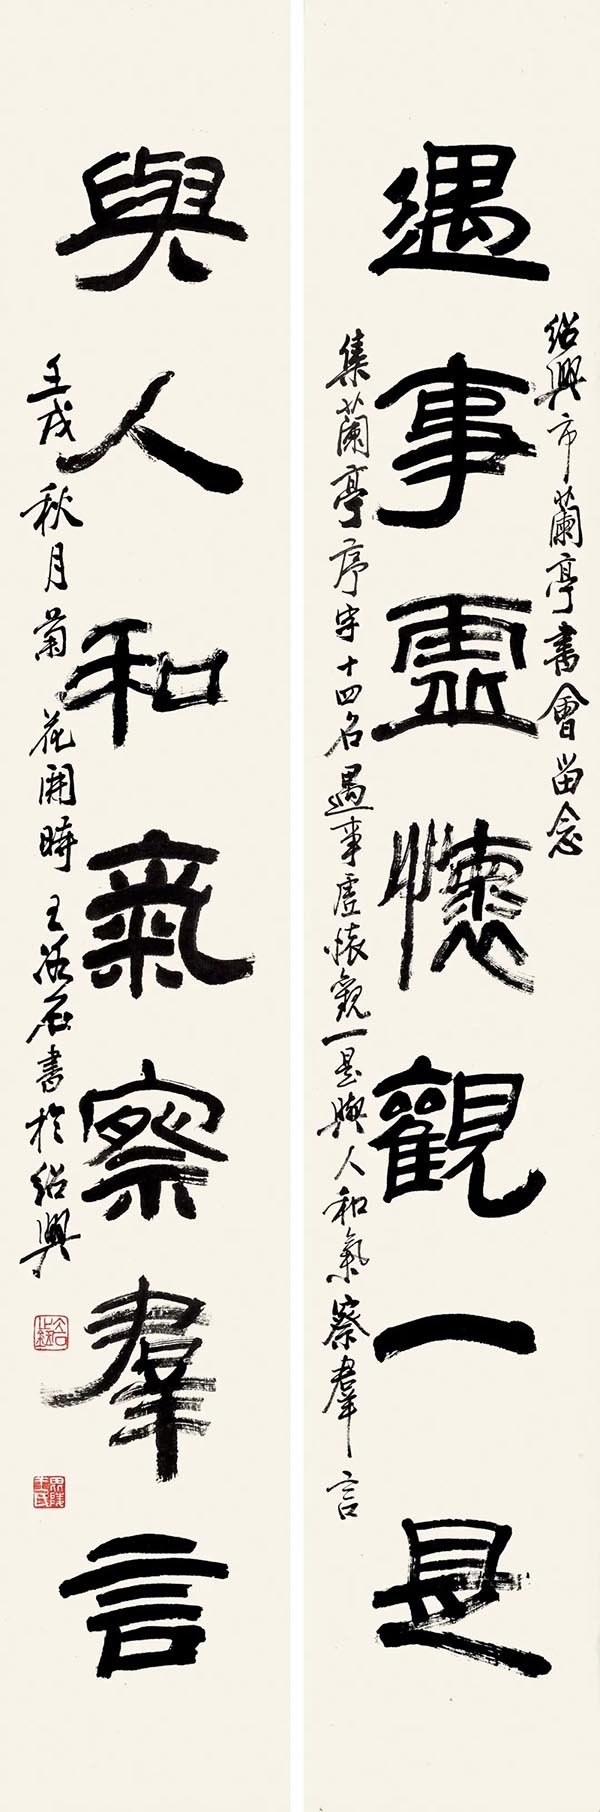 紹興市蘭亭書會留念
遇事虛懷觀一是
集蘭亭序字十四名遇事虛懷觀一是與人和氣察羣言
與人和氣察羣言
壬戌秋月菊花開時王石書於紹興